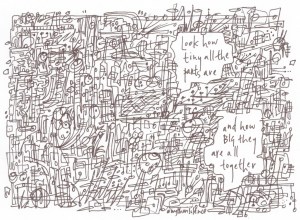 look how
tiny all the
parts are
and how
BIG they
are all
together